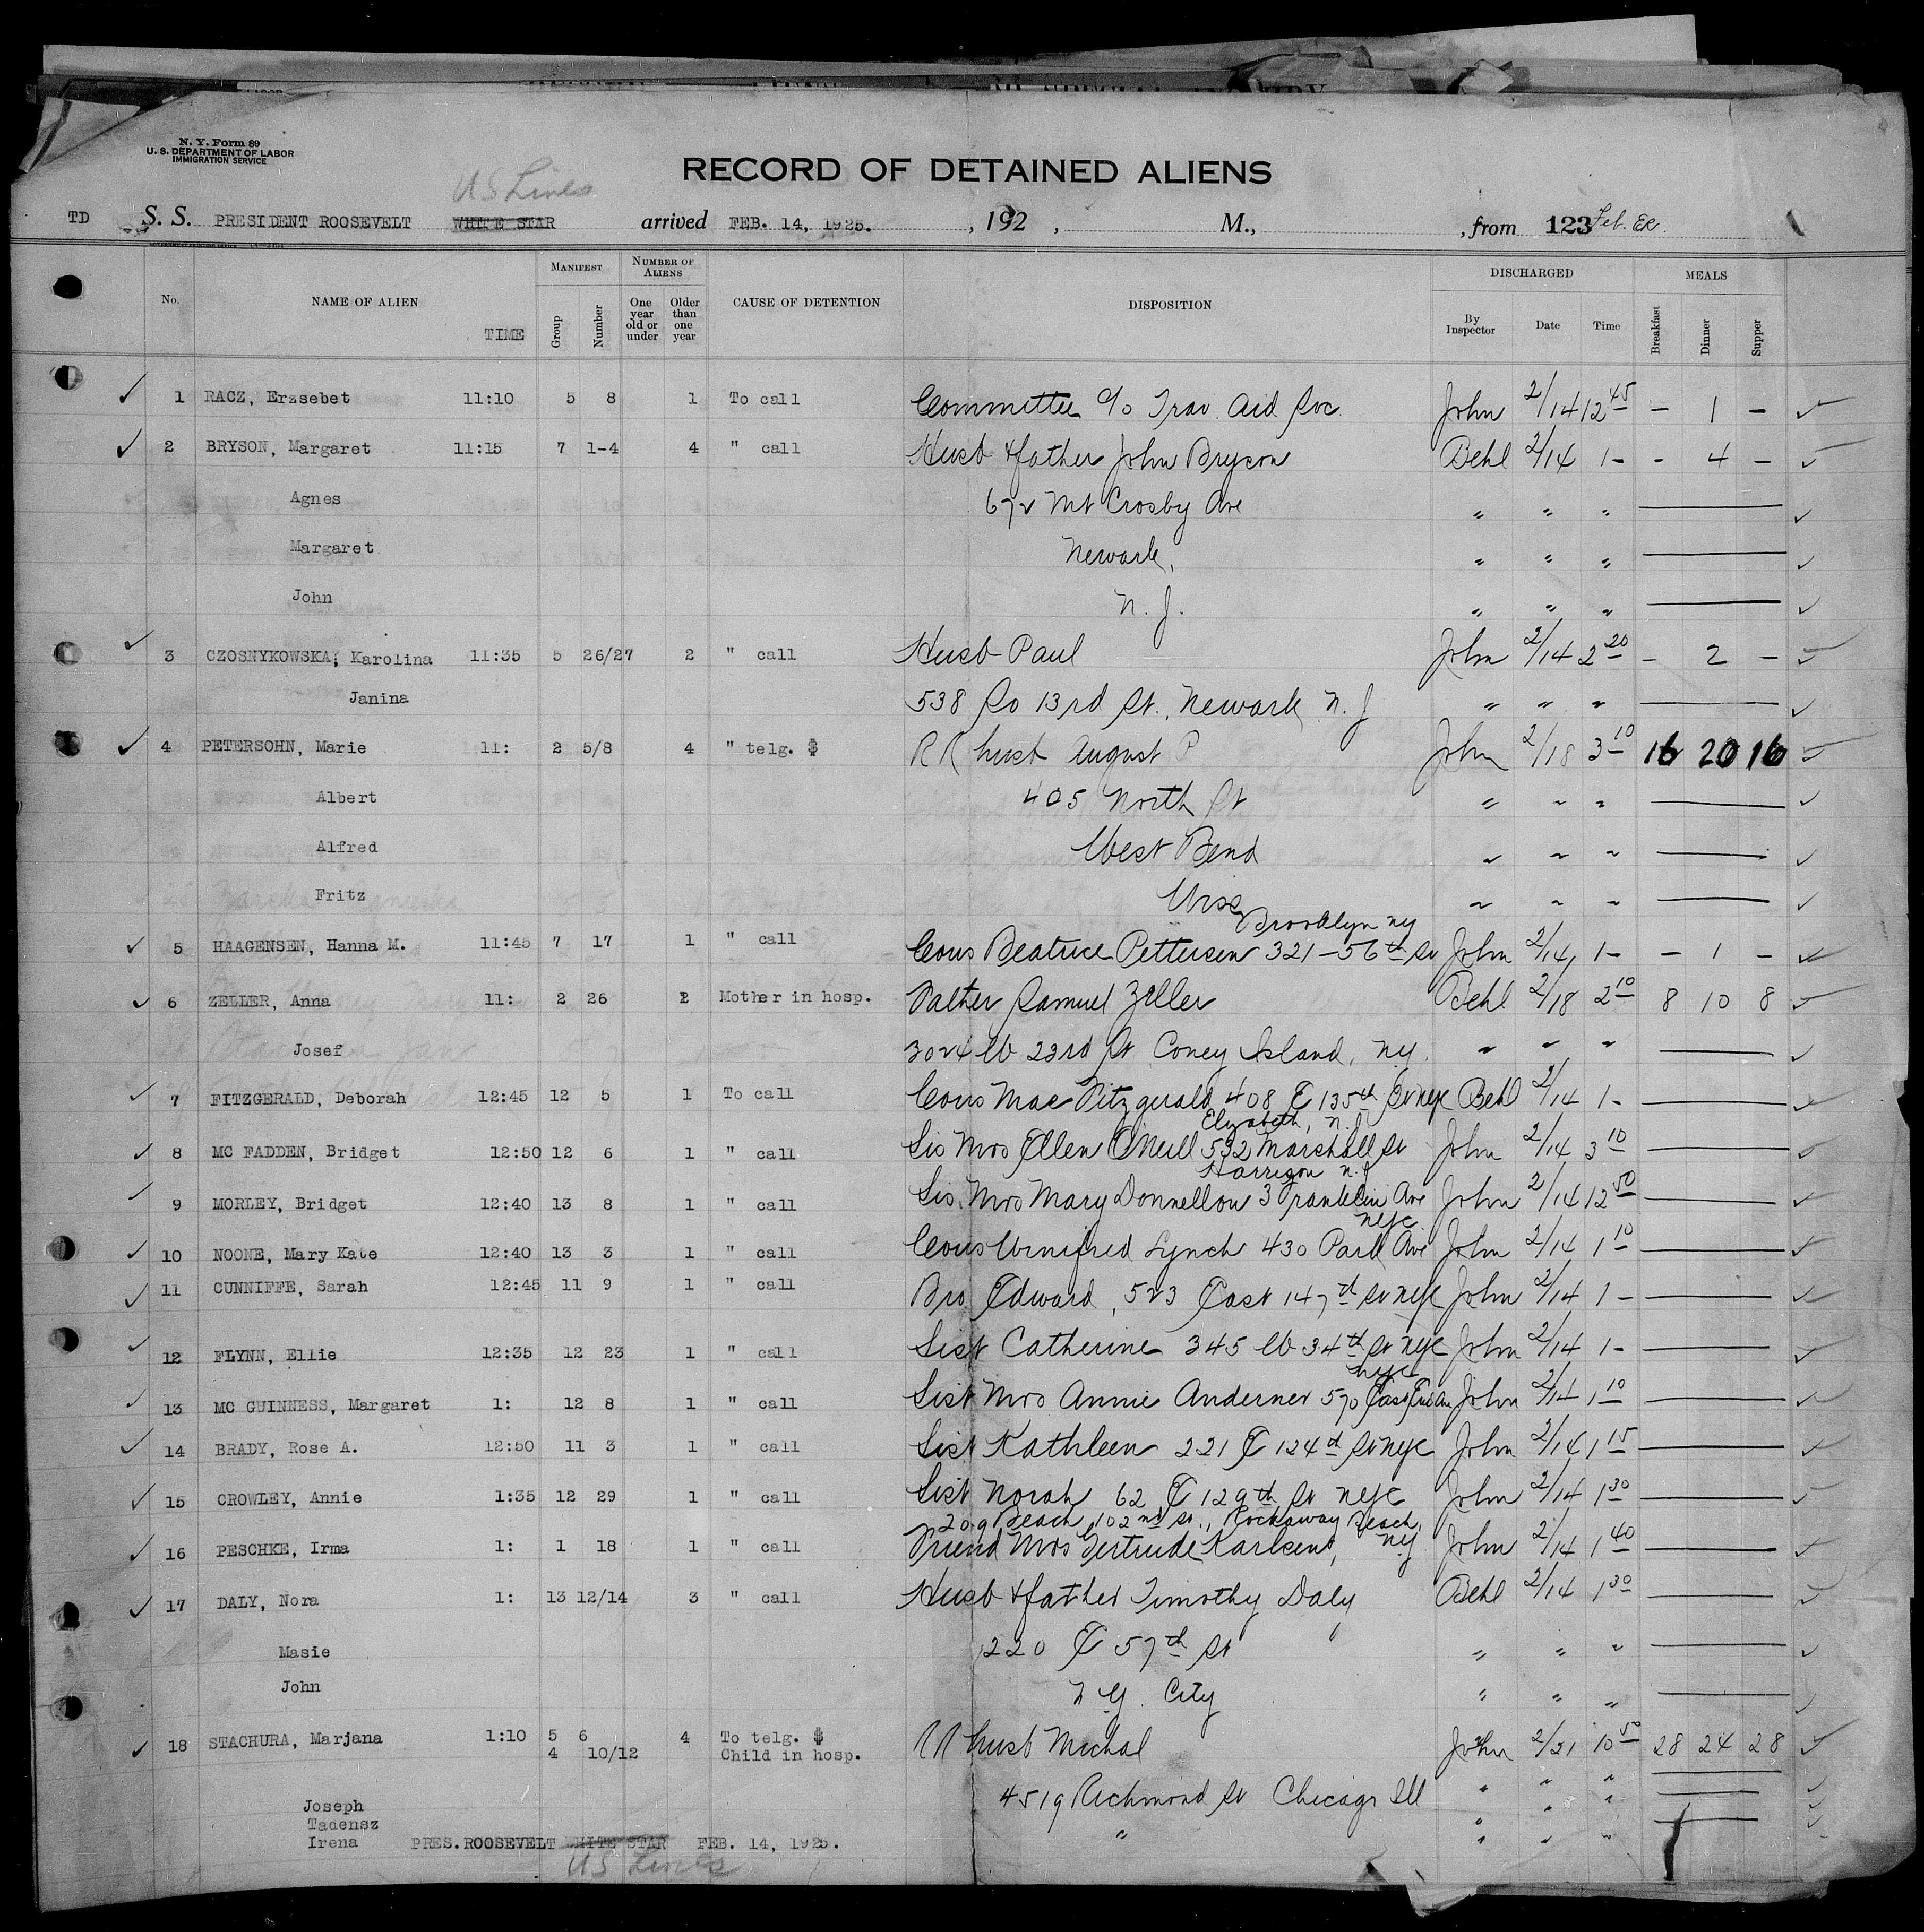 N. Y. Form 89
U. S. DEPARTMENT OF LABOR
IMMIGRATION SERVICE
RECORD OF DETAINED ALIENS
US Lines
TD S. S. PRESIDENT ROOSEVELT WHITE STAR arrived FEB. 14, 1925. , 192 , M., , from 123 Feb.
No. NAME OF ALIEN TIME MANIFEST Group Number NUMBER OF ALIENS One year old or under Older than one year CAUSE OF DETENTION DISPOSITION DISCHARGED By Inspector Date Time MEALS Breakfast Dinner Supper
1 RACZ, Erzsebet 11:10 5 8 1 To call Committee c/o Trav. Aid Soc. John 2/14 12 45 – 1 –
2 BRYSON, Margaret 11:15 7 1-4 4 " call Husb & father John Bryson Behl 2/14 1 – – 4 –
Agnes 672 Mt Crosby Ave " " "
Margaret Newark, " " "
John N. J. " " "
3 CZOSNYKOWSKA, Karolina 11:35 5 26/27 2 " call Husb Paul John 2/14 2 20 – 2 –
Janina 538 So 13rd St., Newark N. J " " "
4 PETERSOHN, Marie 11: 2 5/8 4 " telg. $ RR husb August P John 2/18 3 10 16 20 16
Albert 405 North St " " "
Alfred West Bend " " "
Fritz Wisc " " "
Brooklyn NY
5 HAAGENSEN, Hanna M. 11:45 7 17 1 " call Cous Beatrice Pettersen 321-56th St John 2/14 1 – – 1 –
6 ZELLER, Anna 11: 2 26 2 Mother in hosp. Father Samuel Zeller Behl 2/18 2 10 8 10 8
Josef 3024 W 23rd St Coney Island, N.Y. " " "
7 FITZGERALD, Deborah 12:45 12 5 1 To call Cous Mae Fitzgerald 408 E 135th St NYC Behl 2/14 1 –
Elizabeth, N.J
8 MC FADDEN, Bridget 12:50 12 6 1 " call Sis Mrs Ellen O'Neill 532 Marshall St John 2/14 3 10
Harrison N.J
9 MORLEY, Bridget 12:40 13 8 1 " call Sis. Mrs Mary Donnellon 3 Franklin Ave John 2/14 12 50
NYC
10 NOONE, Mary Kate 12:40 13 3 1 " call Cous Winifred Lynch 430 Park Ave John 2/14 1 10
11 CUNNIFFE, Sarah 12:45 11 9 1 " call Bro Edward, 523 East 147th St NYC John 2/14 1 –
12 FLYNN, Ellie 12:35 12 23 1 " call Sist Catherine 345 W 34th St NYC John 2/14 1 –
NYC
13 MC GUINNESS, Margaret 1: 12 8 1 " call Sist Mrs Annie Anderner 570 East End Av John 2/14 1 10
14 BRADY, Rose A. 12:50 11 3 1 " call Sist Kathleen 221 E 124th St NYC John 2/14 1 15
15 CROWLEY, Annie 1:35 12 29 1 " call Sist Norah 62 E 129th St NYC John 2/14 1 30
209 Beach 102nd St., Rockaway Beach,
16 PESCHKE, Irma 1: 1 18 1 " call Friend Mrs Gertrude Karlsent, NY John 2/14 1 40
17 DALY, Nora 1: 13 12/14 3 " call Husb & father Timothy Daly Behl 2/14 1 30
Masie 220 E 57th St " " "
John N.Y. City " " "
18 STACHURA, Marjana 1:10 5 6 4 To telg. $ RR husb Michal John 2/21 10 50 28 24 28
4 10/12 Child in hosp.
4519 Richmond St Chicago Ill " " "
Joseph
Tadensz " " "
Irena PRES. ROOSEVELT WHITE STAR FEB. 14, 1925. " " " "
US Lines